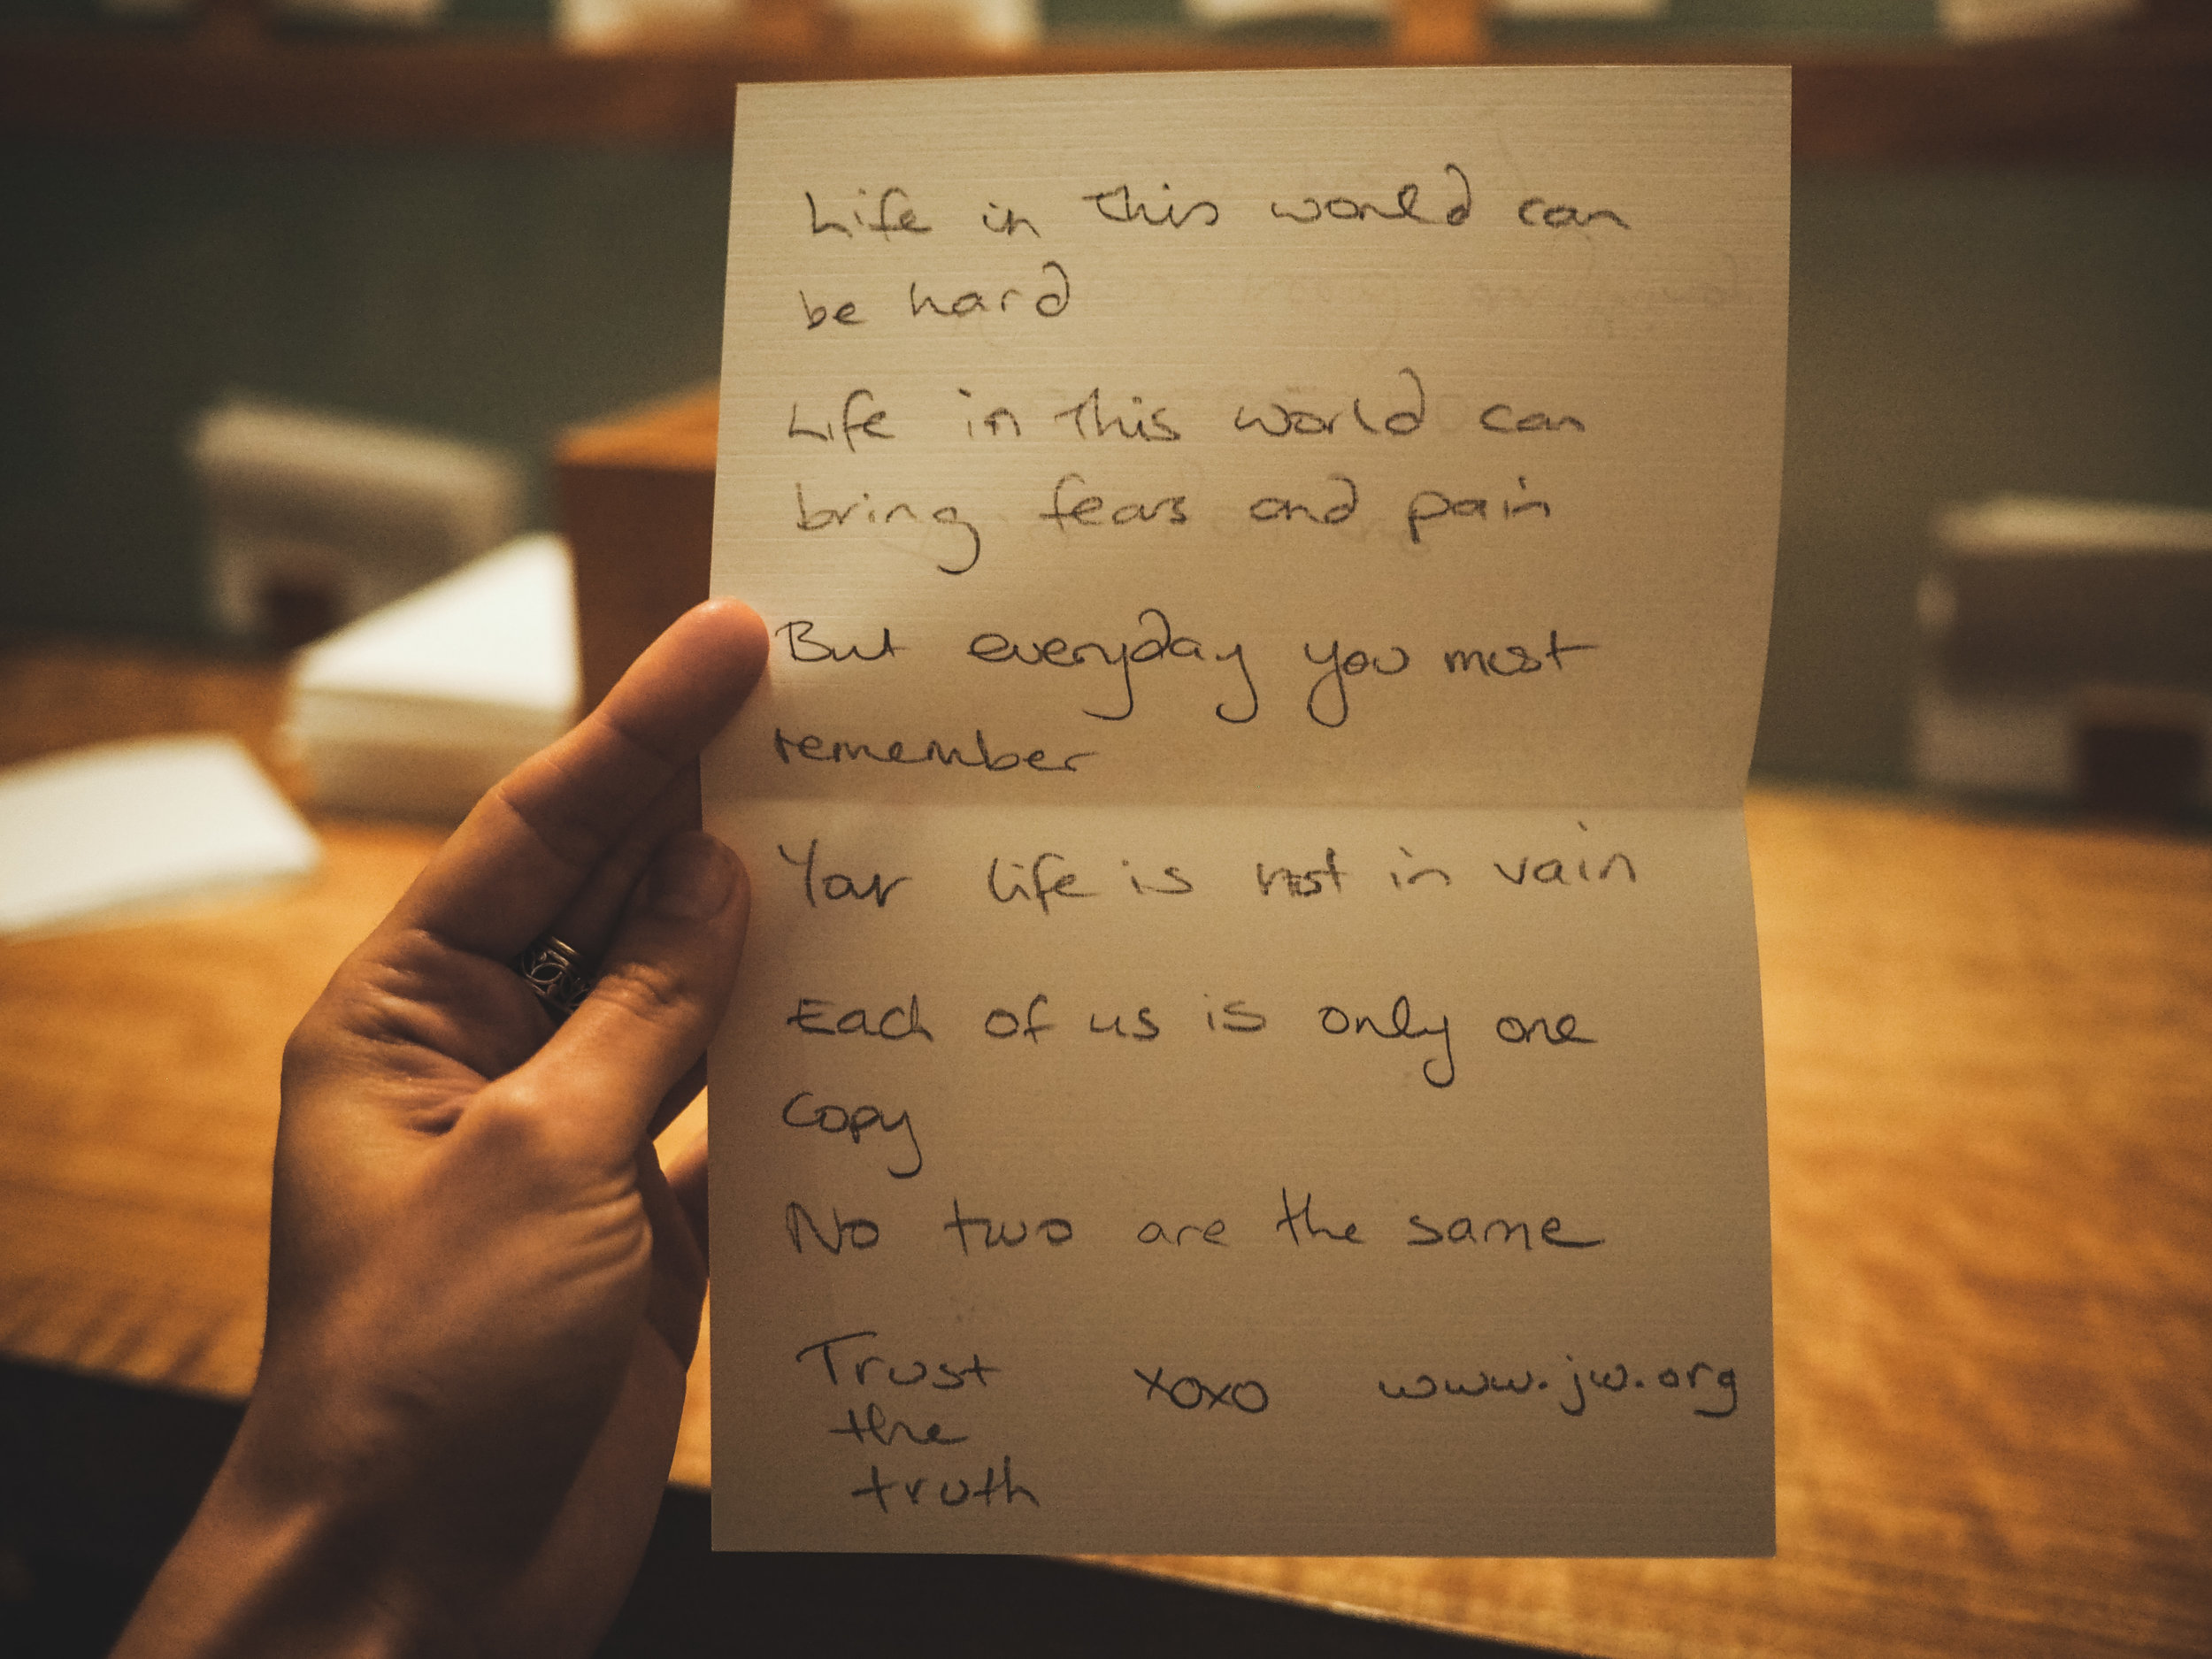 Life in this world can
be hard
Life in this world can
bring fears and pain
But everyday you must
remember
Your life is not in vain
Each of us is only one
copy
No two are the same
Trust xoxo www.jw.org
the
truth